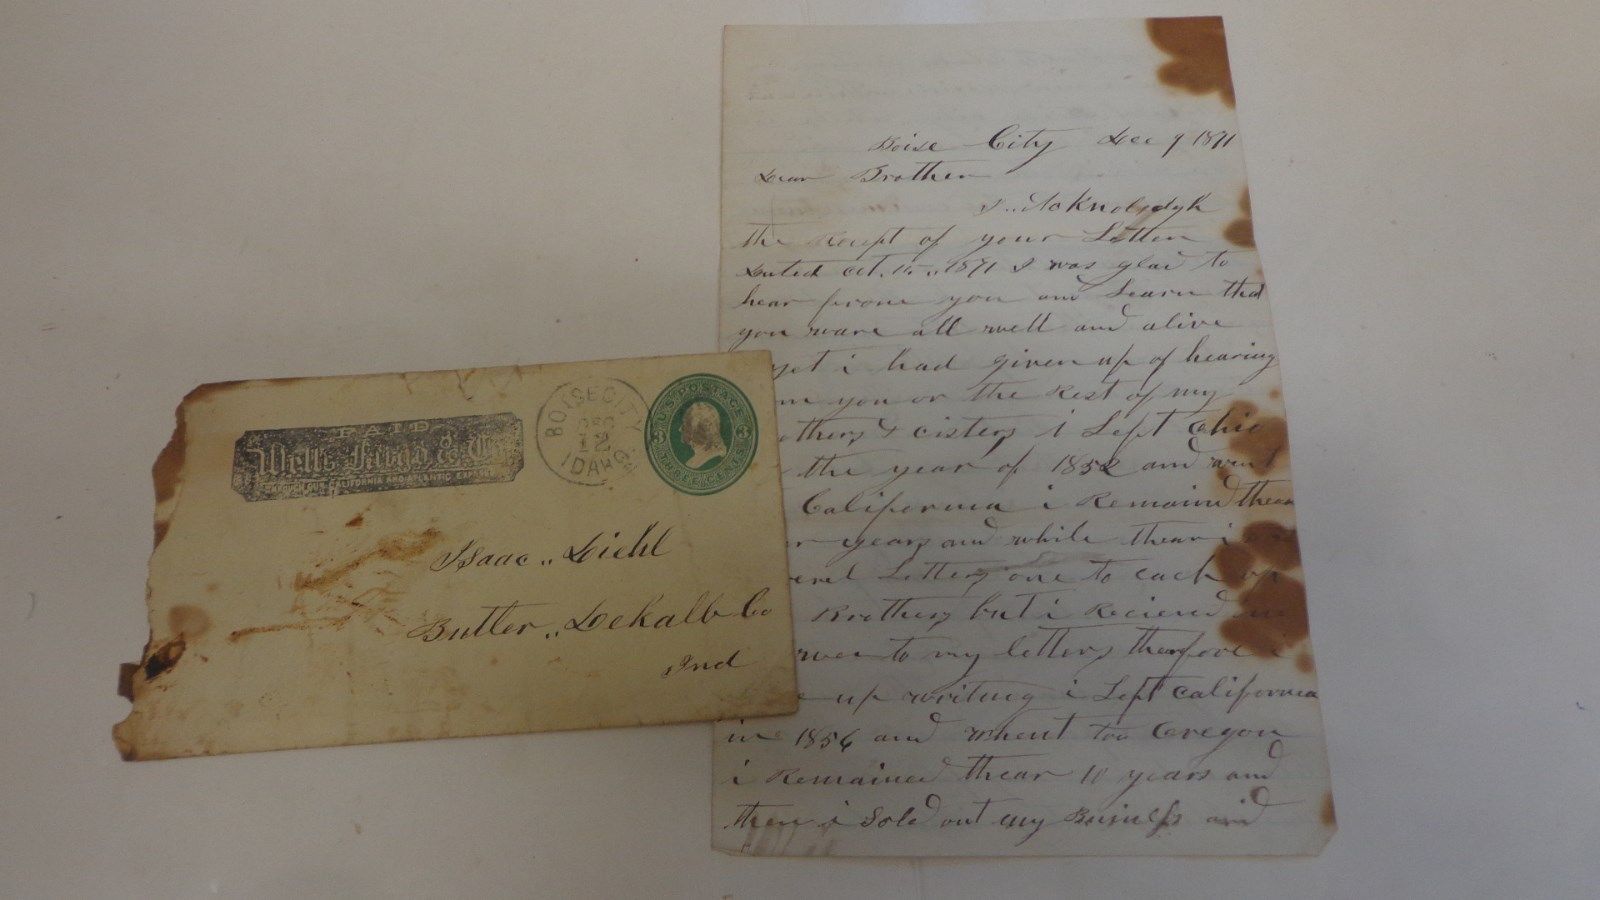 PAID
Wells Fargo & Co
THROUGH OUR CALIFORNIA AND ATLANTIC EXPRESS
BOISE CITY
DEC
12
IDAHO
U.S. POSTAGE
3 3
THREE CENTS
Isaac ,, Diehl
Butler ,, Dekalb Co
Ind
Boise City Dec 9 1871
Dear Brother
I ,, Acknoledgk
the Receipt of your Letter
Dated Oct. 15 ,, 1871 I was glad to
hear frome you and Learn that
you ware all well and alive
yet i had given up of hearing
you or the Rest of my
others & cisters i Left Ohio
the year of 1852 and went
California i Remaind thear
years and while thear i
Letters one to each of
Brothers but i Recieved no
to my letters thearfore i
up writing i Left California
in 1856 and whent too Oregon
i Remained thear 10 years and
then i Sold out my Business and